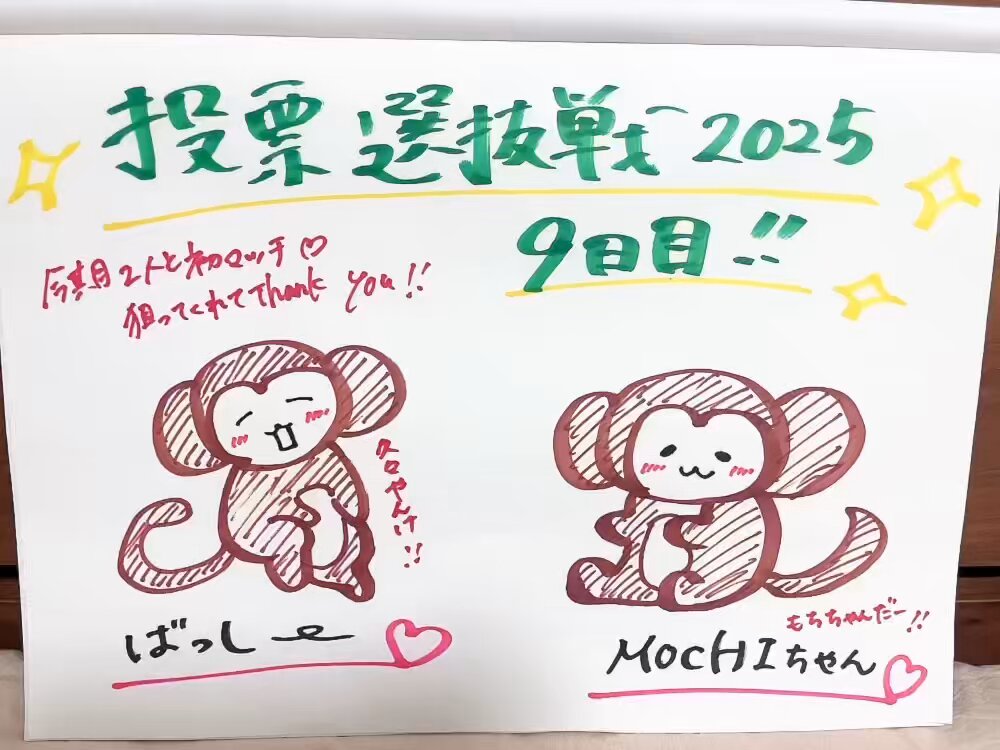 投票選抜戦2025
9日目!!
今期2人と初マッチ♡
狙ってくれてThank you!!
やんけ!!
ばっしー
もちちゃんだー!!
MOCHIちゃん